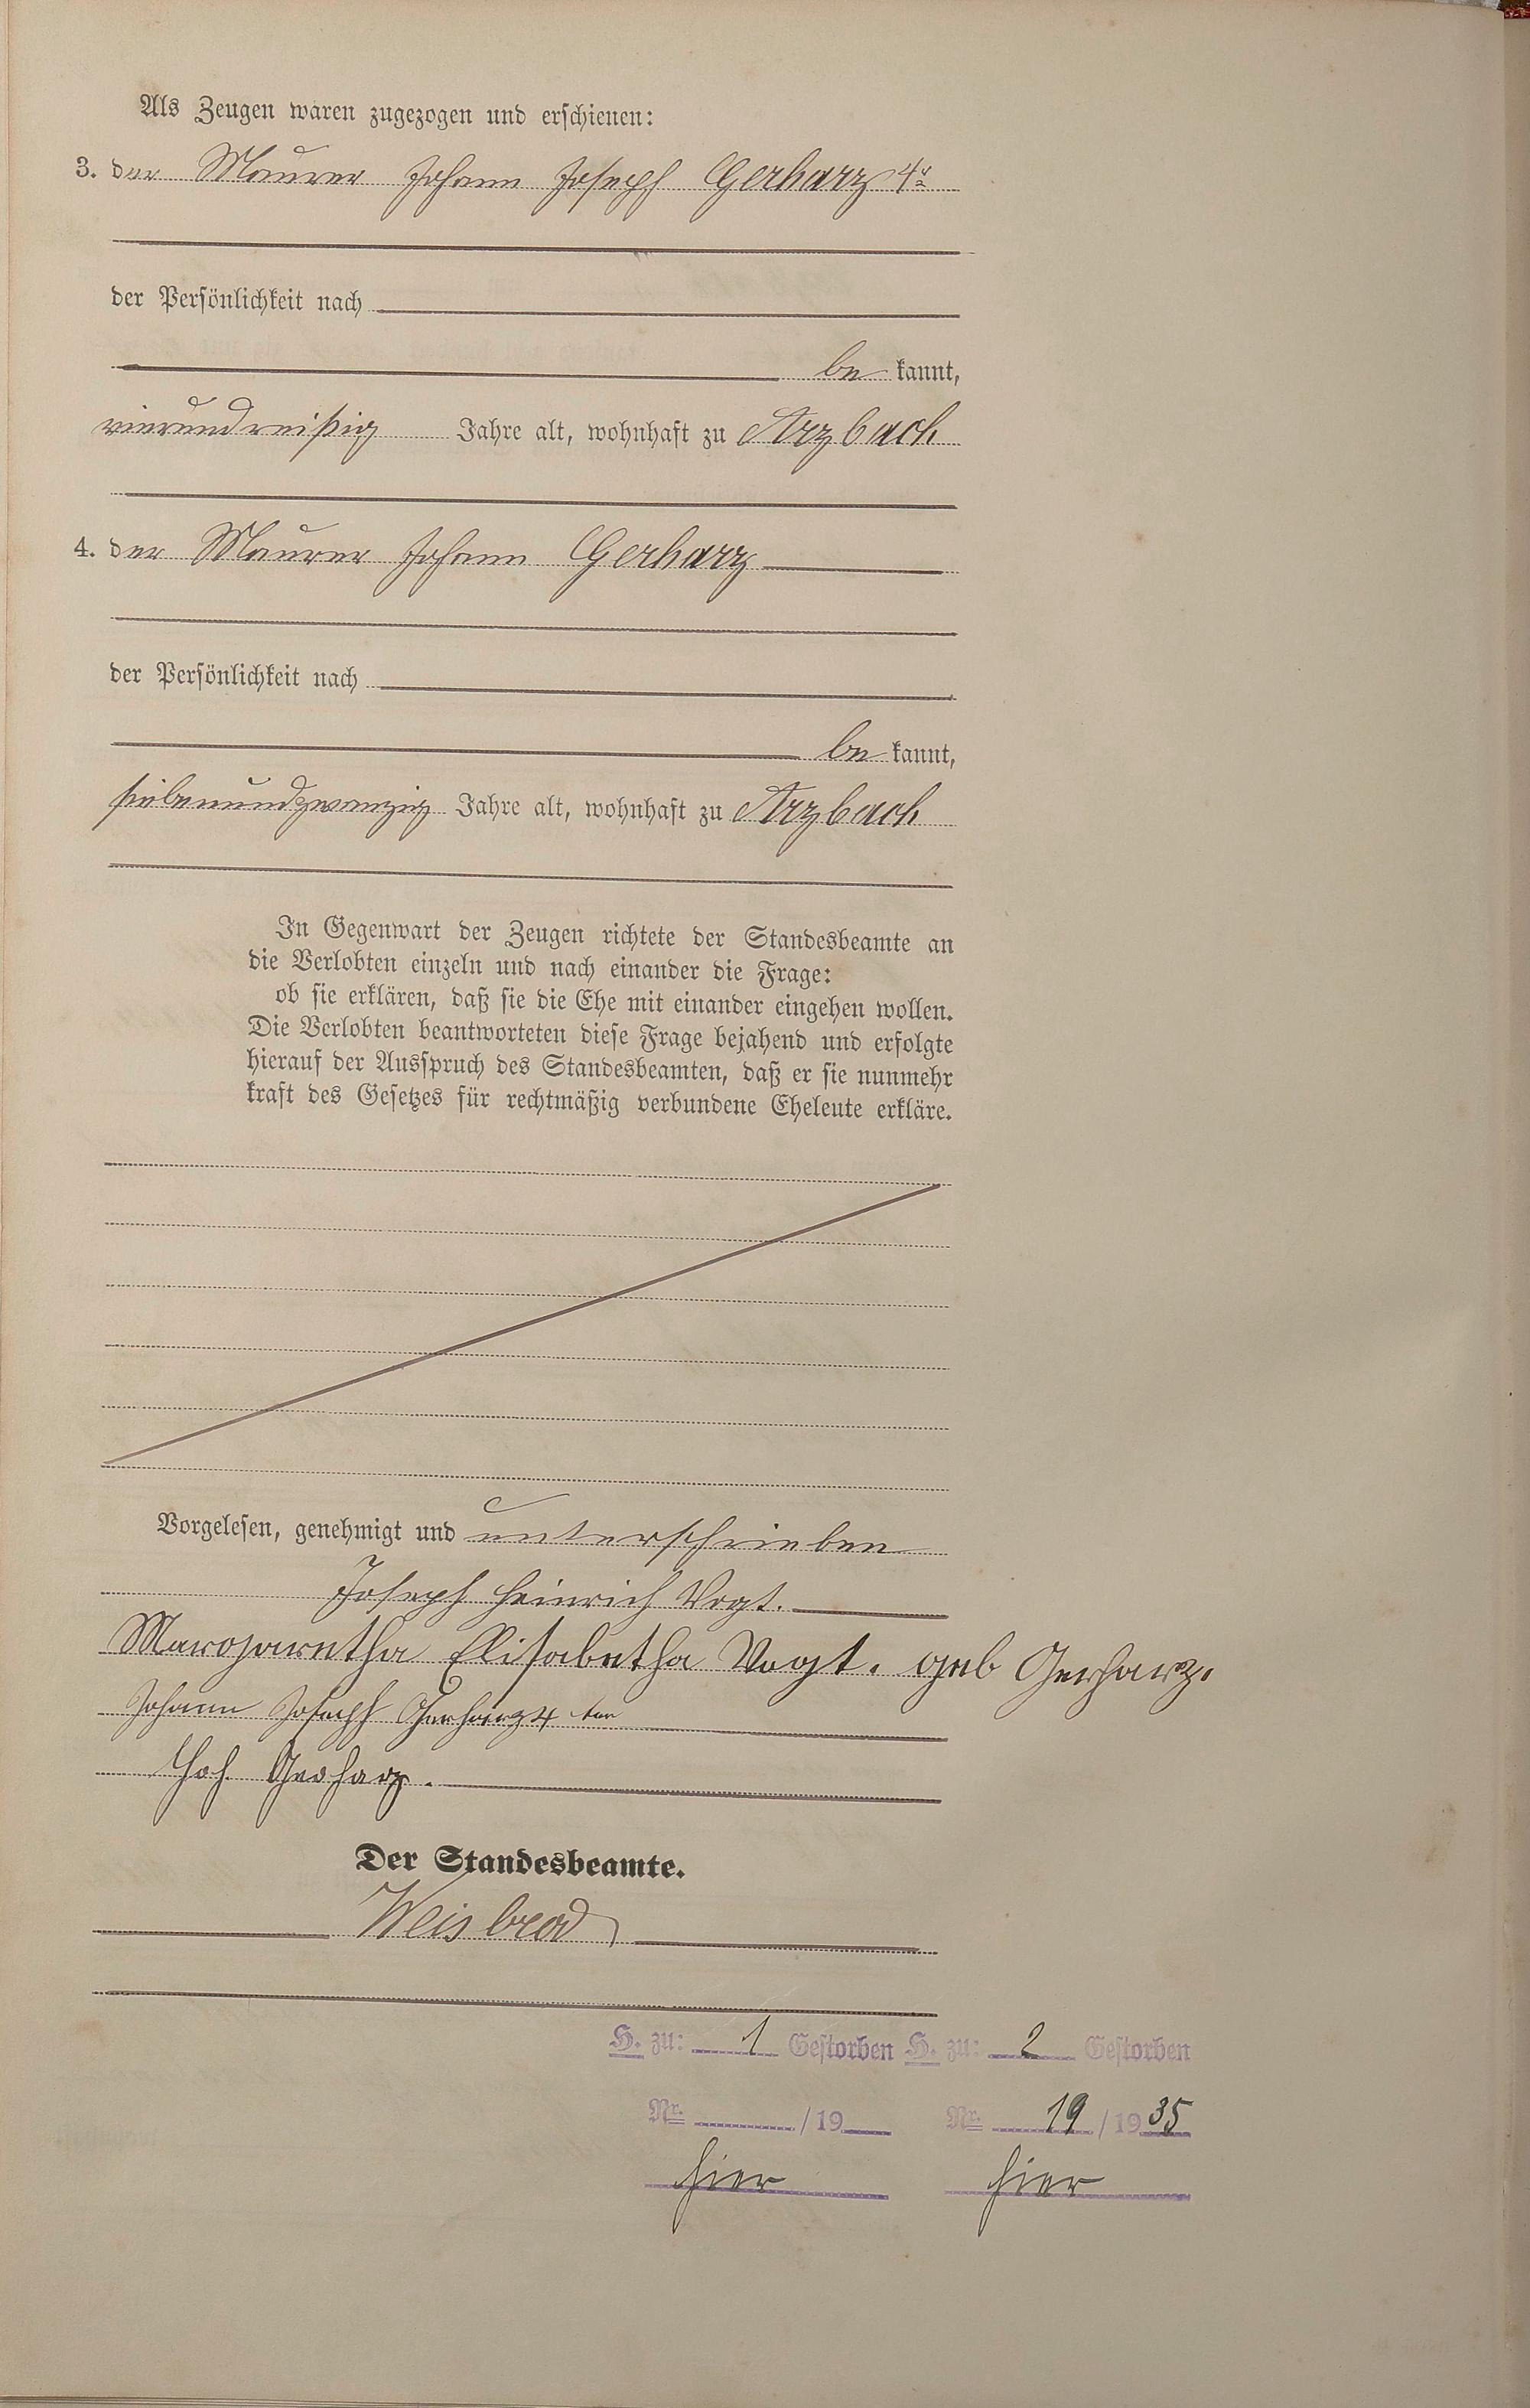 Als Zeugen waren zugezogen und erschienen:
3. der Maurer Johann Joseph Gerharz 4r
der Persönlichkeit nach
be kannt,
vierundreißig Jahre alt, wohnhaft zu Arzbach
4. der Maurer Johann Gerharz
der Persönlichkeit nach
be kannt,
siebenundzwanzig Jahre alt, wohnhaft zu Arzbach
In Gegenwart der Zeugen richtete der Standesbeamte an
die Verlobten einzeln und nach einander die Frage:
ob sie erklären, daß sie die Ehe mit einander eingehen wollen.
Die Verlobten beantworteten diese Frage bejahend und erfolgte
hierauf der Ausspruch des Standesbeamten, daß er sie nunmehr
kraft des Gesetzes für rechtmäßig verbundene Eheleute erkläre.
Vorgelesen, genehmigt und unterschrieben
Joseph Heinrich Vogt.
Margaretha Elisabetha Vogt. geb Gerharz.
Johann Joseph Gerharz 4 ter
Joh. Gerharz.
Der Standesbeamte.
Weisbrod
H. zu: 1 Gestorben H. zu: 2 Gestorben
Nr. / 19 Nr. 19 / 1935
hier hier